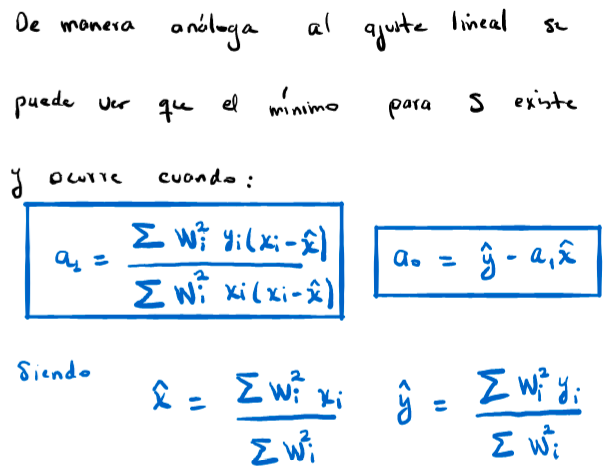 De manera análoga al ajuste lineal se
puede ver que el mínimo para S existe
y ocurre cuando:
a₁ = Σ Wᵢ² yᵢ(xᵢ-x̂) / Σ Wᵢ² xᵢ(xᵢ-x̂)
a₀ = ŷ - a₁x̂
Siendo x̂ = Σ Wᵢ² xᵢ / Σ Wᵢ² ŷ = Σ Wᵢ² yᵢ / Σ Wᵢ²